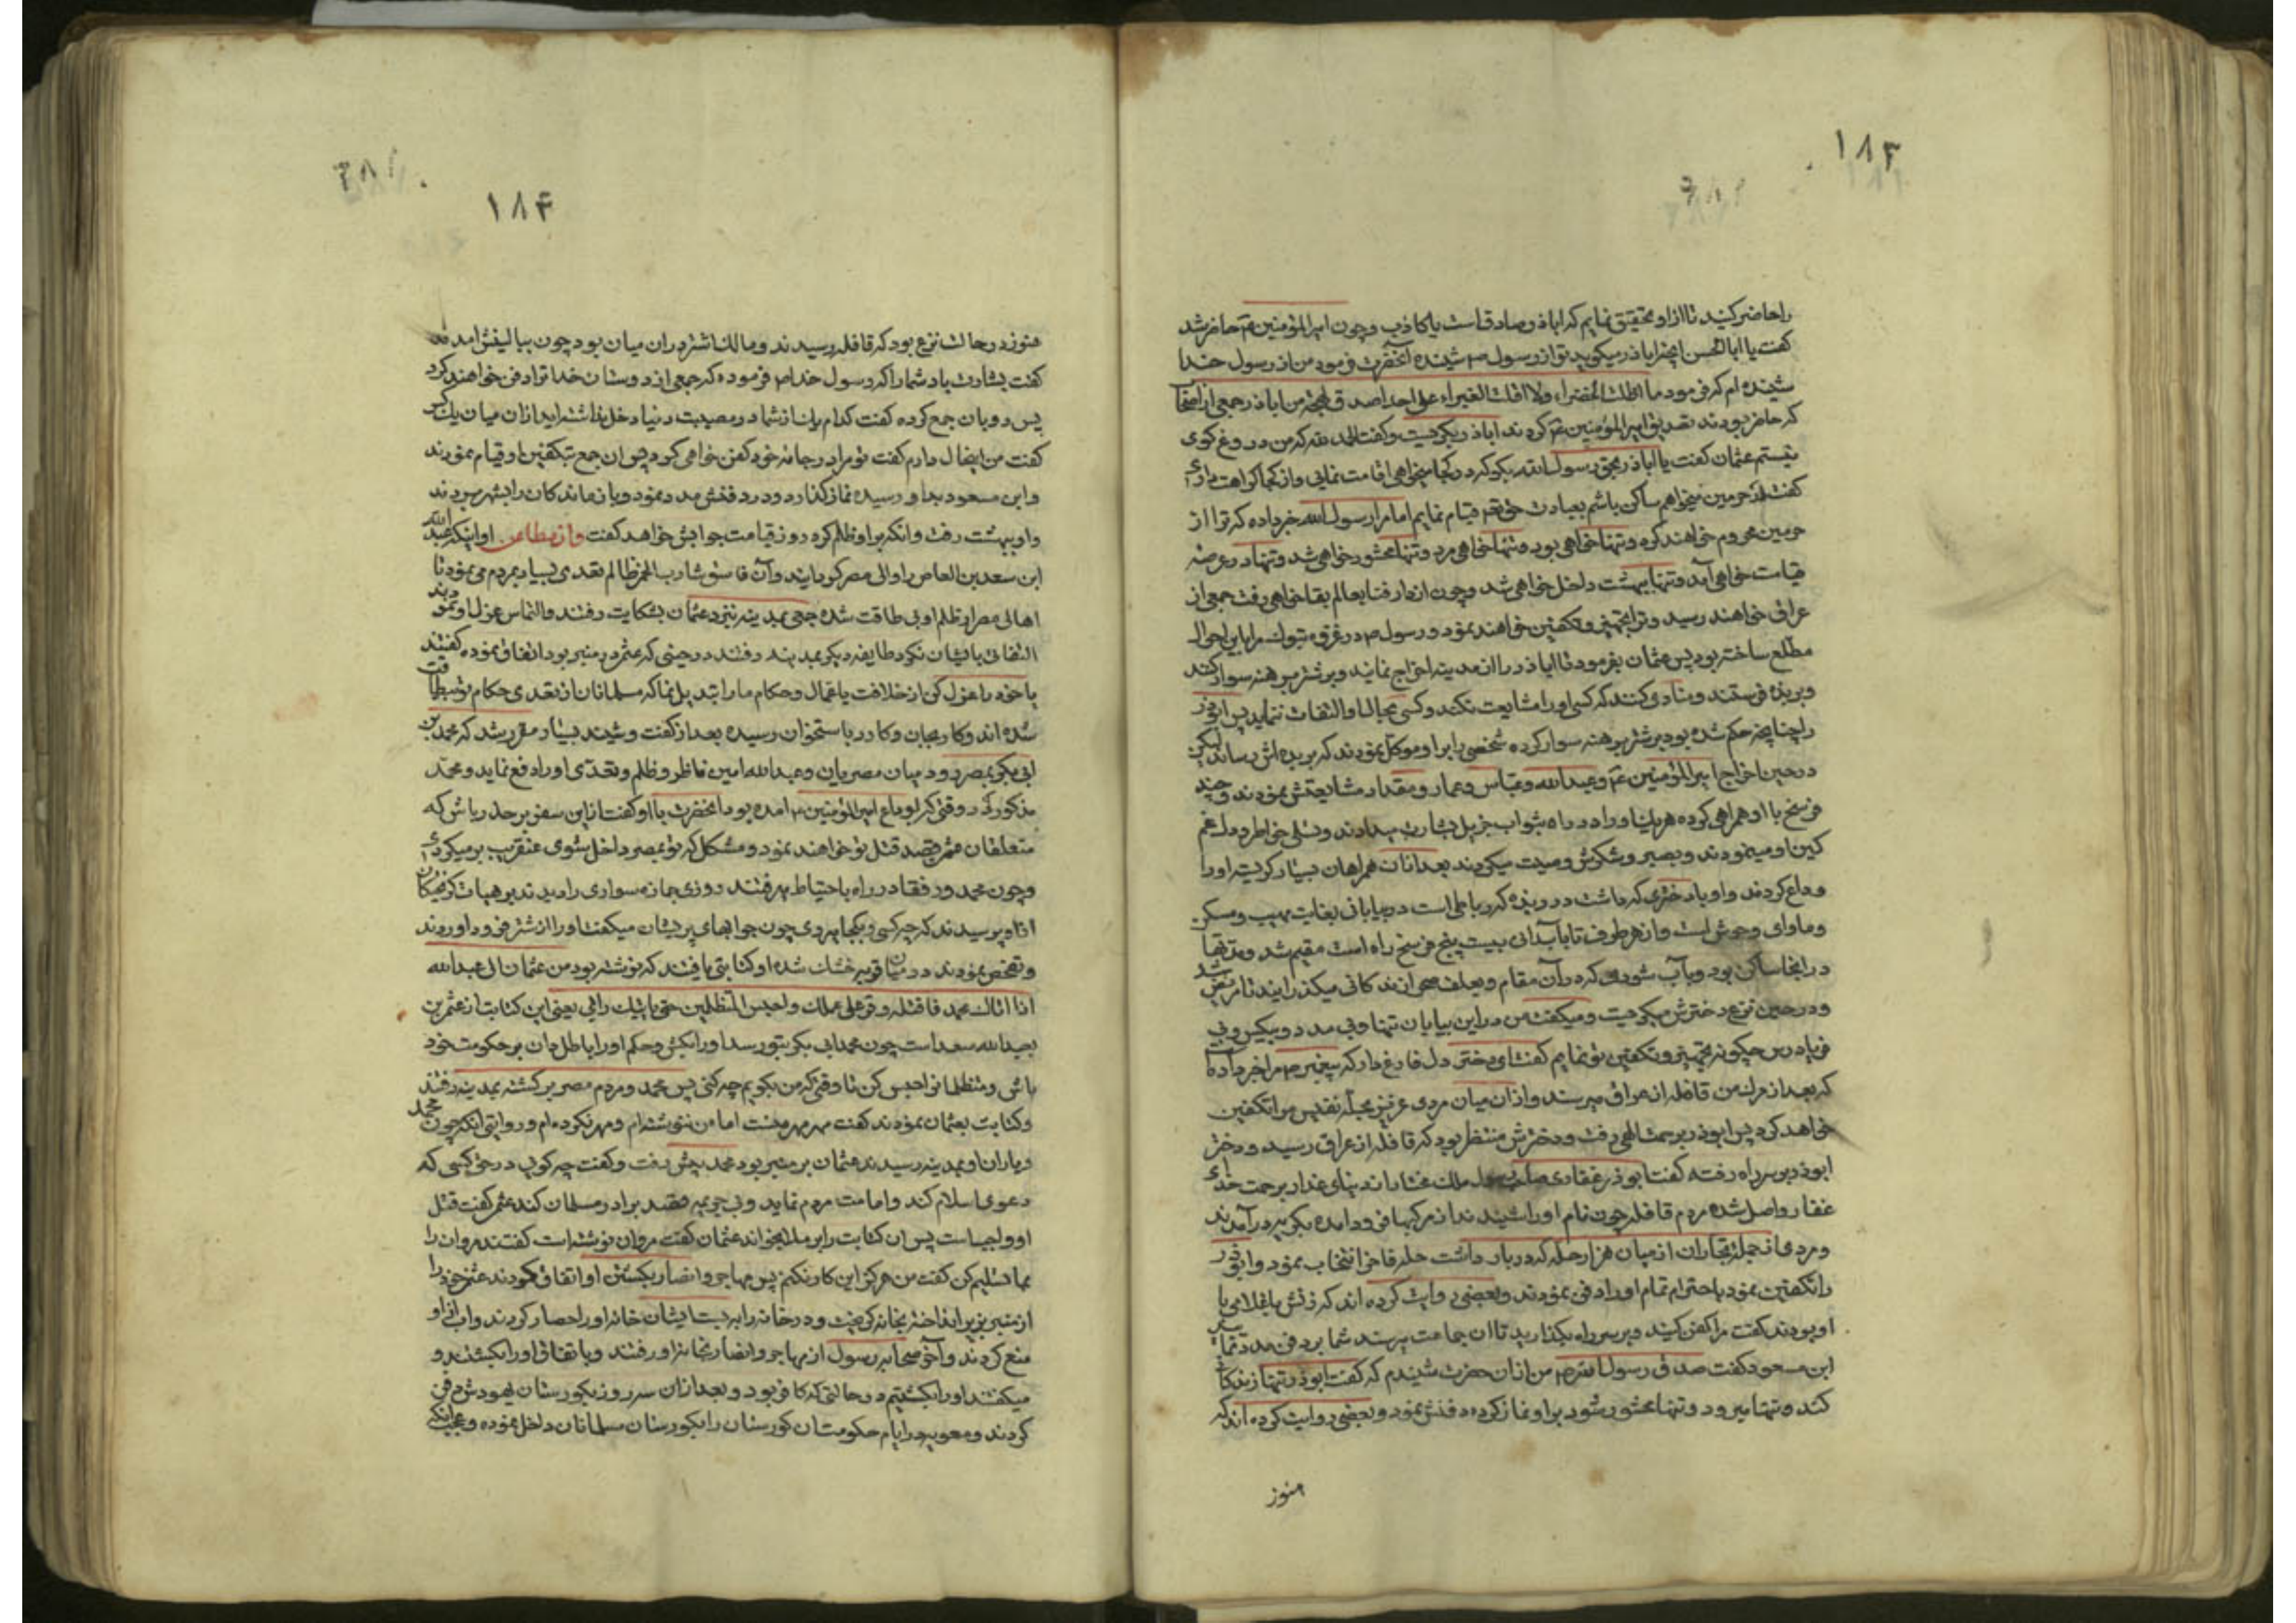 ۱۸۳
را حاضر کنید تا از او تحقیق نمایم که اباذر صادقست یا کاذب و چون امیرالمؤمنین ع حاضر شد
گفت یا ابا الحسن اینچه اباذر میکوید تو از رسول ص شنیده آنحضرت فرمود من از رسول خدا
شنیده ام که فرمود ما اظلت الخضراء ولا اقلت الغبراء علی احد اصدق لهجة من اباذر جمعی از اصحاب
که حاضر بودند تصدیق امیرالمؤمنین ع کردند اباذر بکریست و گفت الحمد لله که من دروغ کوی
نیستم عثمان گفت یا اباذر بحق رسول الله بکو که در کجا میخواهی اقامت نمایی و از کجا کراهت داری
گفت در حرمین میخواهم ساکن باشم بعبادت حق تعه قیام نمایم اما مرا رسول الله خبر داده که ترا از
حرمین محروم خواهند کرد و تنها خواهی بود و تنها خواهی مرد و تنها محشور خواهی شد و تنها در عرصه
قیامت خواهی آمد و تنها ببهشت داخل خواهی شد و چون از دار فنا بعالم بقا خواهی رفت جمعی از
عراق خواهند رسید و ترا تجهیز و تکفین خواهند نمود و رسول ص در غزوه تبوک مرا باین احوال
مطلع ساخته بود پس عثمان بفرمود تا اباذر را از مدینه اخراج نمایند و بر شتر برهنه سوار کنند
و بربذه فرستند و منادی کنند که کسی او را مشایعت نکند و کسی بحال او التفات ننماید پس ابوذر
را چنانچه حکم شده بود بر شتر برهنه سوار کرده شخصی را بر او موکل نمودند که بربذه اش رساند لیکن
در حین اخراج امیرالمؤمنین ع و عبدالله و عباس و عمار و مقداد مشایعتش نمودند و چند
فرسخ با او همراهی کرده هر یک او را در راه بثواب جزیل بشارت میدادند و تسلی خاطر و دل غم
کین او مینمودند و بصبر و شکرش وصیت میکردند بعد از آن همراهان بسیار کریسته او را
وداع کردند و او با دختری که داشت در ربذه که رباطی است در بیابانی بغایت مهیب و مسکن
و ماوای وحوش است و از هر طرف تا بآبادانی بیست پنج فرسخ راه است مقیم شد و مدتها
در انجا ساکن بود و بآب شوری که در آن مقام و بعلف صحرا زندکانی میکذرایند تا مریض شد
و در حین نزع دخترش میکریست و میکفت من در این بیابان تنها و بی مدد و بیکس و بی
فریادرس چکونه تجهیز و تکفین تو نمایم گفت ای دختر دل فارغ دار که پیغمبر ص مرا خبر داده
که بعد از مرک من قافله از عراق میرسند و از ان میان مردی عزیز بحله نفیس مرا تکفین
خواهد کرد پس ابوذر برحمت الهی رفت و دخترش منتظر بود که قافله از عراق رسید و دختر
ابوذر بر سر راه رفته گفت ابوذر غفاری صاحب رسول ملک مختار از دنیای غدار برحمت خدای
غفار واصل شده مردم قافله چون نام او را شنیدند از مرکبها فرود امده بکریه در آمدند
و مردی از جمله تجاران از میان هزار حله که در بار داشت حله فاخر انتخاب نمود و ابوذر
را تکفین نمود باحترام تمام او را دفن نمودند و بعضی روایت کرده اند که زنش با غلامی با
او بودند گفت مرا کفن کنید و بر سر راه بکذارید تا ان جماعت برسند شما بر دفن مدد نمایید
ابن مسعود گفت صدق رسول الله ص من از ان حضرت شنیدم که گفت ابوذر تنها زندکانی
کند و تنها میرود و تنها محشور شود بر او نماز کرده دفنش نمود و بعضی روایت کرده اند که
هنوز
۱۸۴
هنوز در حالت نزع بود که قافله رسیدند و مالک اشتر در ان میان بود چون ببالینش امدند
گفت بشارت باد شما را که رسول خدا ص فرموده که جمعی از دوستان خدا ترا دفن خواهند کرد
پس رو بان جمع کرده گفت کدام یک از شما در مصیبت دنیا دخل نداشته اید از ان میان یک کس
گفت من اینحال دارم گفت تو مرا در جامه خود کفن خواهی کرد پس ان جمع بتکفین او قیام نمودند
و ابن مسعود بدا و رسیده نماز کذارد و در دفنش مدد نمود و بازماندکان را بشهر بردند
و او ببهشت رفت و انکه بر او ظلم کرد روز قیامت جوابش خواهد گفت و از مطاعن او اینکه عبد الله
ابن سعد بن العاص را والی مصر کردایند و آن فاسق شارب الخمر ظالم تعدی بسیار بمردم می نمود تا
اهالی مصر از ظلم او بی طاقت شده جمعی بمدینه نزد عثمان بشکایت رفتند و التماس عزل او نمودند
التفاتی بایشان نکرد طایفه دیکر بمدینه رفتند در حینی که عثمر در منبر بود اتفاق نموده گفتند
یا خود را عزل کن از خلافت یا عمال و حکام ما را تبدیل نما که مسلمانان از تعدی حکام تو بیطاقت
شده اند و کار بجان و کارد باستخوان رسیده بعد از گفت و شنید بسیار مقرر شد که محمد بن
ابی بکر بمصر رود میان مصریان و عبدالله امین ناظر و ظلم و تعدی او را دفع نماید و محمد
مذکور در وقتی که بوداع امیرالمؤمنین ع امده بود انحضرت با او گفت از این سفر بر حذر باش که
متعلقان عثمر قصد قتل تو خواهند نمود و مشکل که تو بمصر داخل شوی عنقریب برمیکردی
و چون محمد و رفقا در راه باحتیاط میرفتند روزی جمازه سواری را دیدند بر هیات کریختکان
از او پرسیدند که چه کسی و بکجا میروی چون جوابهای پریشان میکفت او را از شتر فرود اوردند
و تفحص نمودند در میان قربه خشک شده او کتابتی یافتند که نوشته بود من عثمان الی عبدالله
اذا اتاک محمد فاقتله و قر علی عملک و احبس المتظلمین حتی یاتیک رائی یعنی این کتابت از عثمر بن
بعبدالله سعد است چون محمد ابی بکر بتو رسد او را بکش و حکم او را باطل دان بر حکومت خود
باش و متظلمانرا حبس کن تا وقتی که من بکویم چه کنی پس محمد و مردم مصر برکشته بمدینه رفتند
و کتابت بعثمان نمودند گفت مهر مهر منست اما من ننوشته ام و مهر نکرده ام و روایتی انکه چون محمد
و یاران او بمدینه رسیدند عثمان بر منبر بود محمد پیش رفت و گفت چه کویی در حق کسی که
دعوی اسلام کند و امامت مردم نماید و بی جریمه قصد برادر مسلمان کند عثمر گفت قتل
او واجبست پس ان کتابت را بر ملا بخواند عثمان گفت مروان نوشته است گفتند مروان را
بما تسلیم کن گفت من هرکز این کار نکنم پس مهاجر و انصار بکشتن او اتفاق کردند عثمر خود را
از منبر بزیر انداخته بخانه کریخت و در خانه را به بست ایشان خانه او را حصار کردند و اب از او
منع کردند و آخر صحابه رسول از مهاجر و انصار بخانه او رفتند و باتفاق او را بکشتند و
میکفتند او را بکشتیم در حالتی که کافر بود و بعد از ان سه روز بکورستان یهودش دفن
کردند و معویه در ایام حکومت ان کورستان را بکورستان مسلمانان داخل نموده و عجب انکه